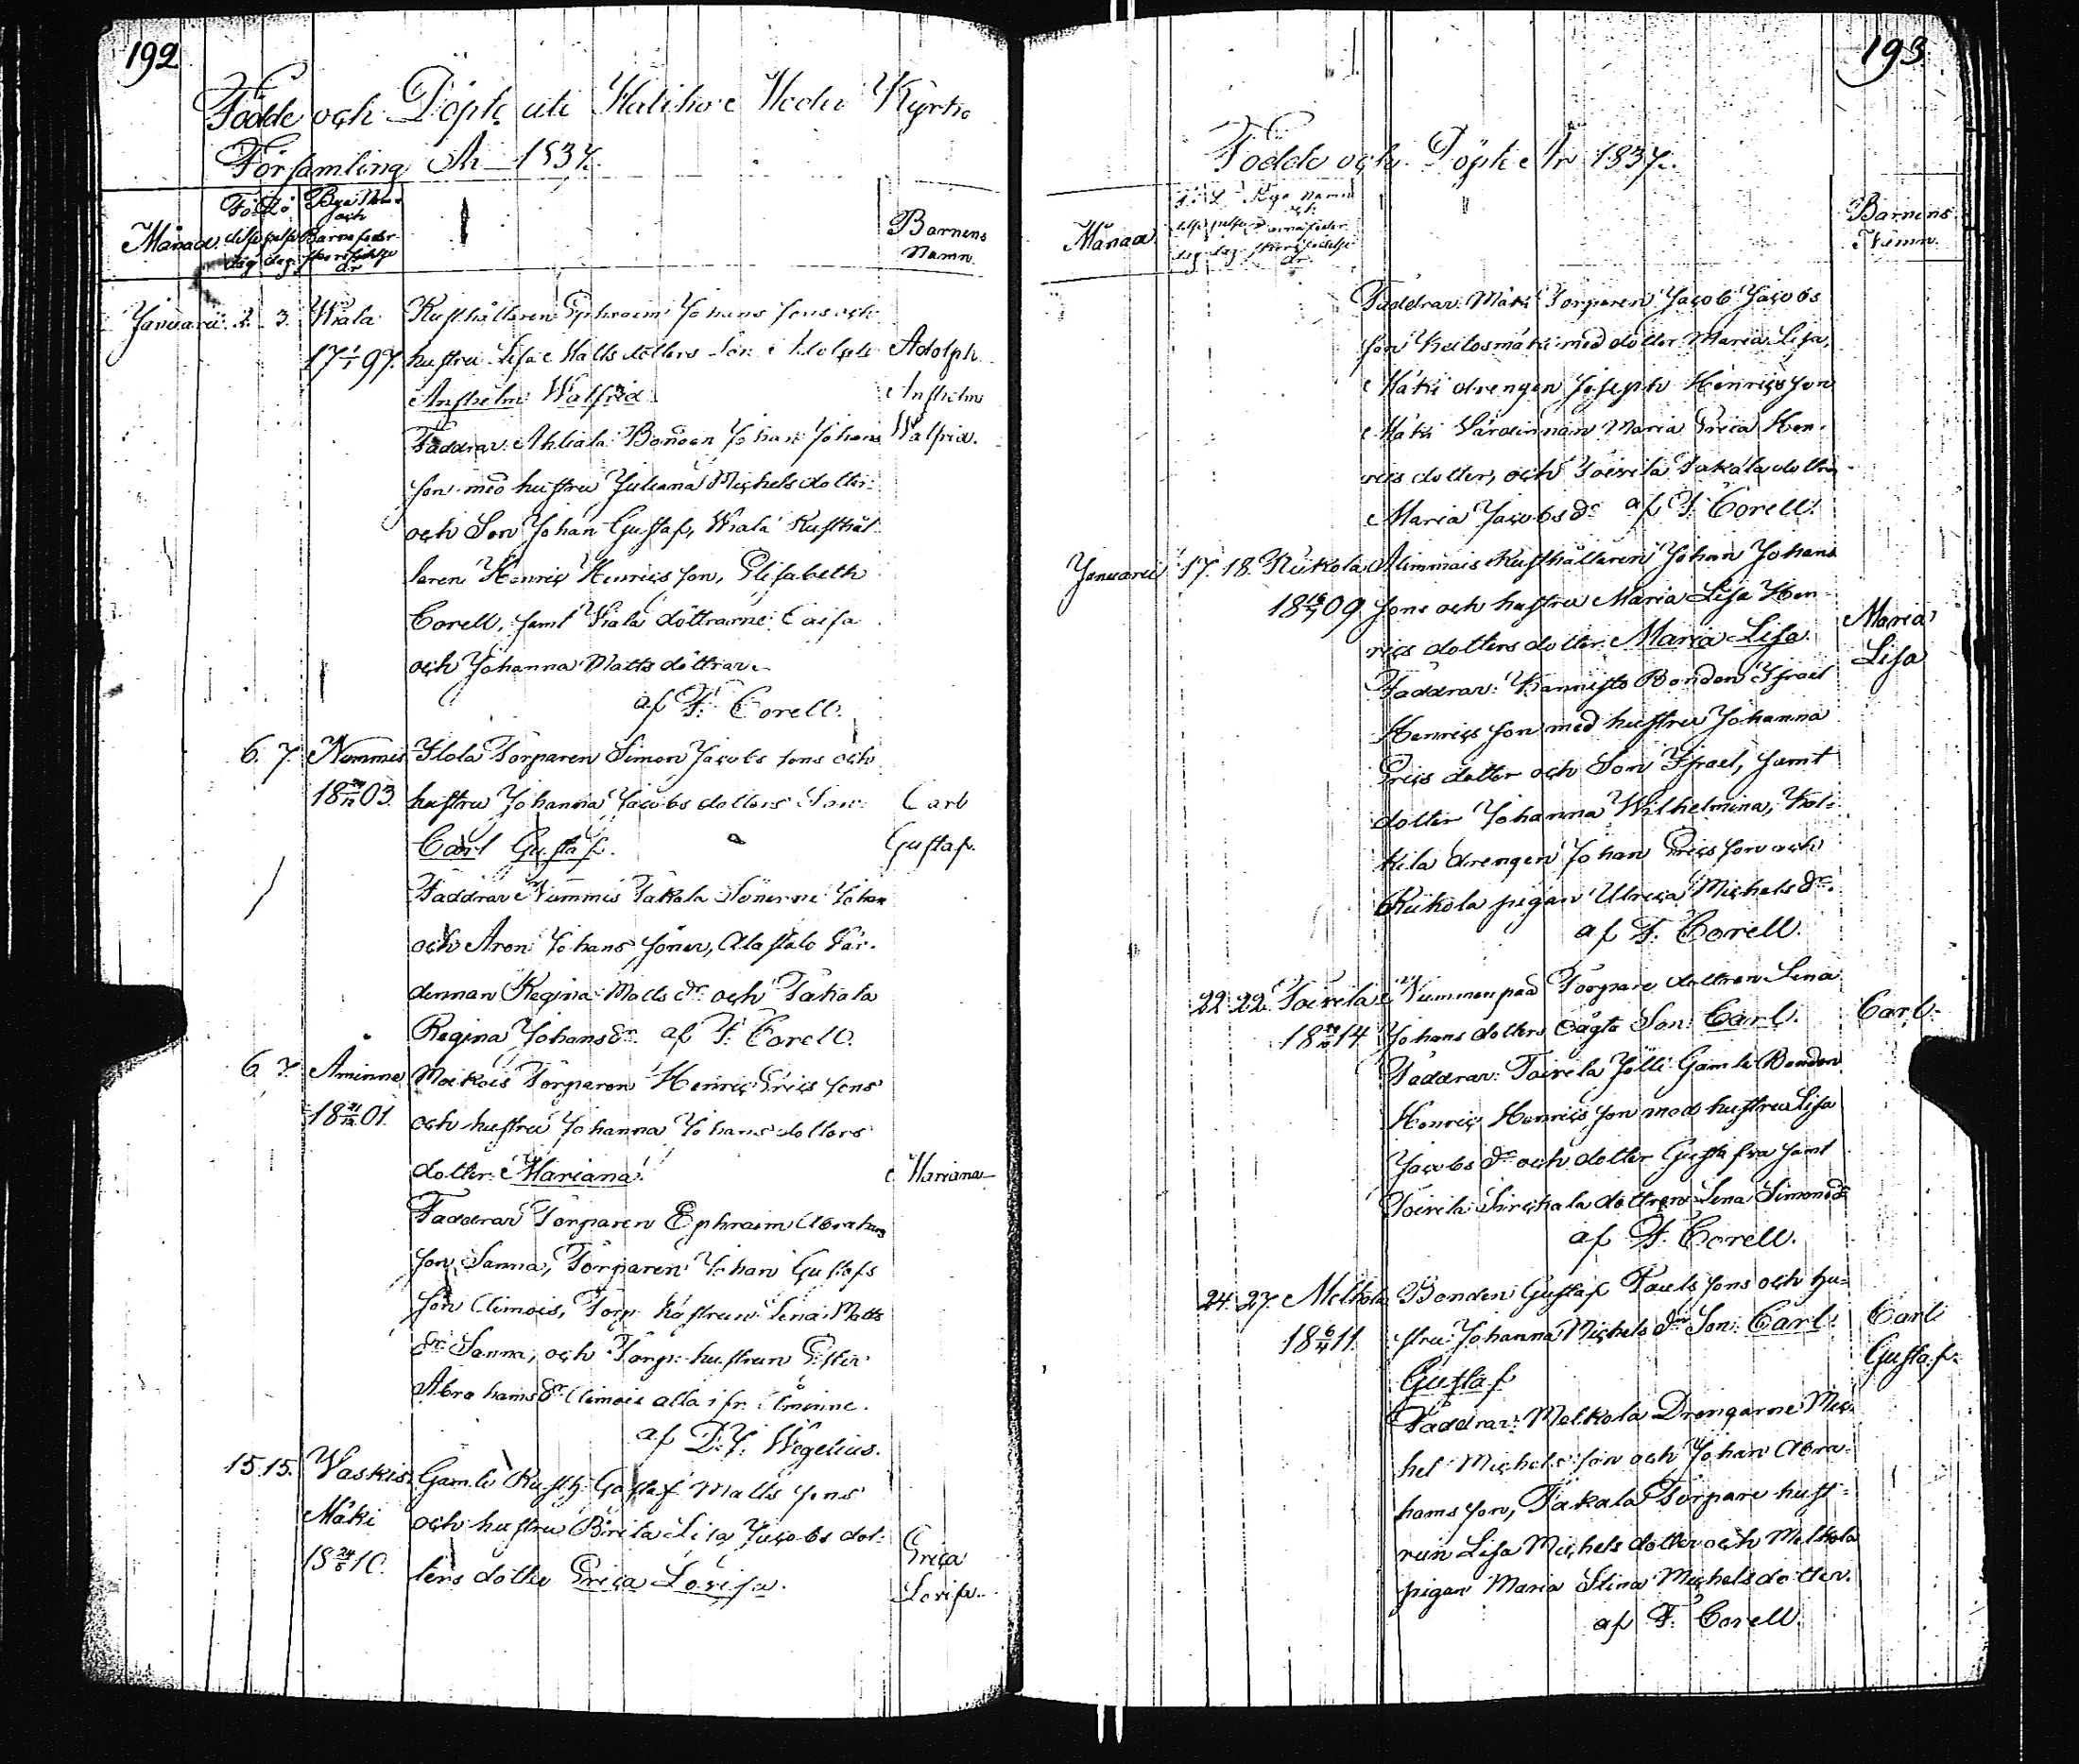 192
Födde och Döpte uti Halikko Moder Kyrko
Församling År 1837.
Månad
Födelse dag
Döpelse dag
Bya Namn och Barnaföderskors födelse år
Barnens Namn
Januarii 2. 3. Wiala Rusthållaren Ephraim Johans sons och
17 1/1 97. hustru Lisa Mattsdotters Son Adolph Adolph
Anshelm Walfrid Anshelm
Faddrar: Ahtiala Bonden Johan Johans Walfrid.
son med hustru Juliana Michels dotter
och Son Johan Gustaf, Wiala Rusthål
laren Henric Henrics son, Elisabeth
Corell, samt Wiala döttrarne Caisa
och Johanna Matts döttrar.
af F. Corell.
6. 7. Nummis Flola Torparen Simon Jacobs sons och
18 03. hustru Johanna Jacobs dotters Son: Carl
Carl Gustaf. Gustaf.
Faddrar Nummis Takala Sönerne Johan
och Aron Johans söner, Alastalo Vär-
dinnan Regina Matts dr och Takala
Regina Johans dr. af F. Corell.
6. 7. Aminne Moikois Torparen Henric Erics sons
18 01. och hustru Johanna Johans dotters
dotter: Mariana. Mariana
Faddrar Torparen Ephraim Abrahams
son Sanna, Torparen Johan Gustafs
son Aimois, Torp. hustrun Lena Matts
dr Sanna, och Torp. hustrun Ester
Abrahams dr Aimois alla ifr. Åminne.
af D. J. Wegelius.
15. 15. Waskis Gamle Rusth. Gustaf Matts sons
Mäki och hustru Brita Lisa Jacobs dot-
18 10. ters dotter Erica Lovisa. Erica
Lovisa.
193
Födde och Döpte År 1837.
Månad
Bya Namn och Barnaföderskors födelse år
Barnens Namn.
Faddrar: Mäki Torparen Jacob Jacobs
son med dotter Maria Lisa,
Mäki drengen Joseph Henrics son
Mäki Värdinnan Maria Erica Hen-
rics dotter, och Toivila Takala dottren
Maria Jacobs dr af F. Corell.
Januarii 17. 18. Riikola Alimmais Rusthållaren Johan Johans
18 09 sons och hustru Maria Lisa Hen- Maria
rics dotters dotter Maria Lisa Lisa
Faddrar: Kannisto Bonden Israel
Henrics son med hustru Johanna
Erics dotter och Son Israel, samt
dotter Johanna Wilhelmina,
drengen Johan Erics son och
Riikola pigan Ulrica Michels dr.
af F. Corell.
22. 22. Toivila Nummenpää Torpare dottren Lena
18 14 Johans dotters oägta Son: Carl. Carl.
Faddrar: Toivila Jölli Gamle Bonden
Henric Henrics son med hustru Lisa
Jacobs dr och dotter Gustafva samt
Toivila dottren Lena Simons dr
af F. Corell.
24. 27. Melkola Bonden Gustaf Pauls sons och hu-
18 11. stru Johanna Michels dr Son: Carl Carl
Gustaf Gustaf.
Faddrar: Melkola Drengarne Mic-
hel Michels son och Johan Abra-
hams son, Takala Torpare hust-
run Lisa Michels dotter och Melkola
pigan Maria Stina Michels dotter.
af F. Corell.